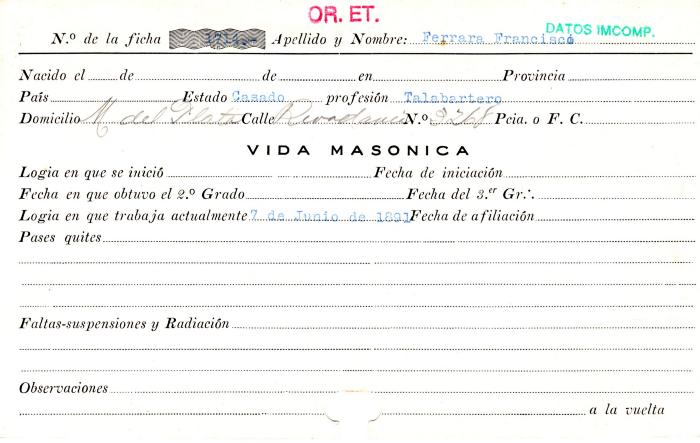 OR. ET.
DATOS IMCOMP.
N.º de la ficha 1714.- Apellido y Nombre: Ferrara Francisco
Nacido el de de en Provincia
País Estado Casado profesión Talabartero
Domicilio M del Plata Calle Rivadavia N.º 3268 Pcia. o F. C.
VIDA MASONICA
Logia en que se inició Fecha de iniciación
Fecha en que obtuvo el 2.º Grado Fecha del 3.er Gr∴
Logia en que trabaja actualmente 7 de Junio de 1891 Fecha de afiliación
Pases quites
Faltas-suspensiones y Radiación
Observaciones
a la vuelta